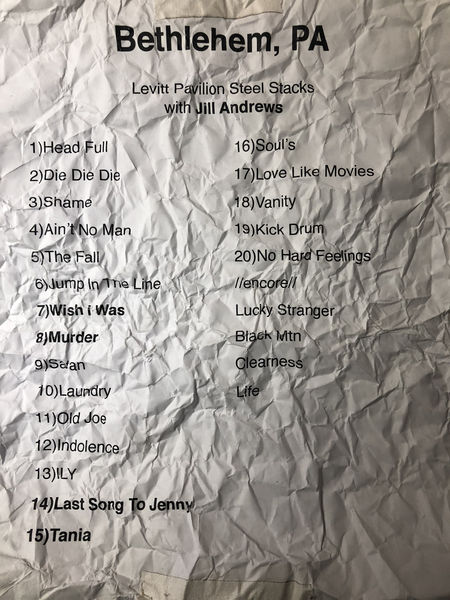 Bethlehem, PA
Levitt Pavilion Steel Stacks
with Jill Andrews
1)Head Full
2)Die Die Die
3)Shame
4)Ain't No Man
5)The Fall
6)Jump In The Line
7)Wish i Was
8)Murder
9)Satan
10)Laundry
11)Old Joe
12)Indolence
13)ILY
14)Last Song To Jenny
15)Tania
16)Soul's
17)Love Like Movies
18)Vanity
19)Kick Drum
20)No Hard Feelings
//encore//
Lucky Stranger
Black Mtn
Clearness
Life